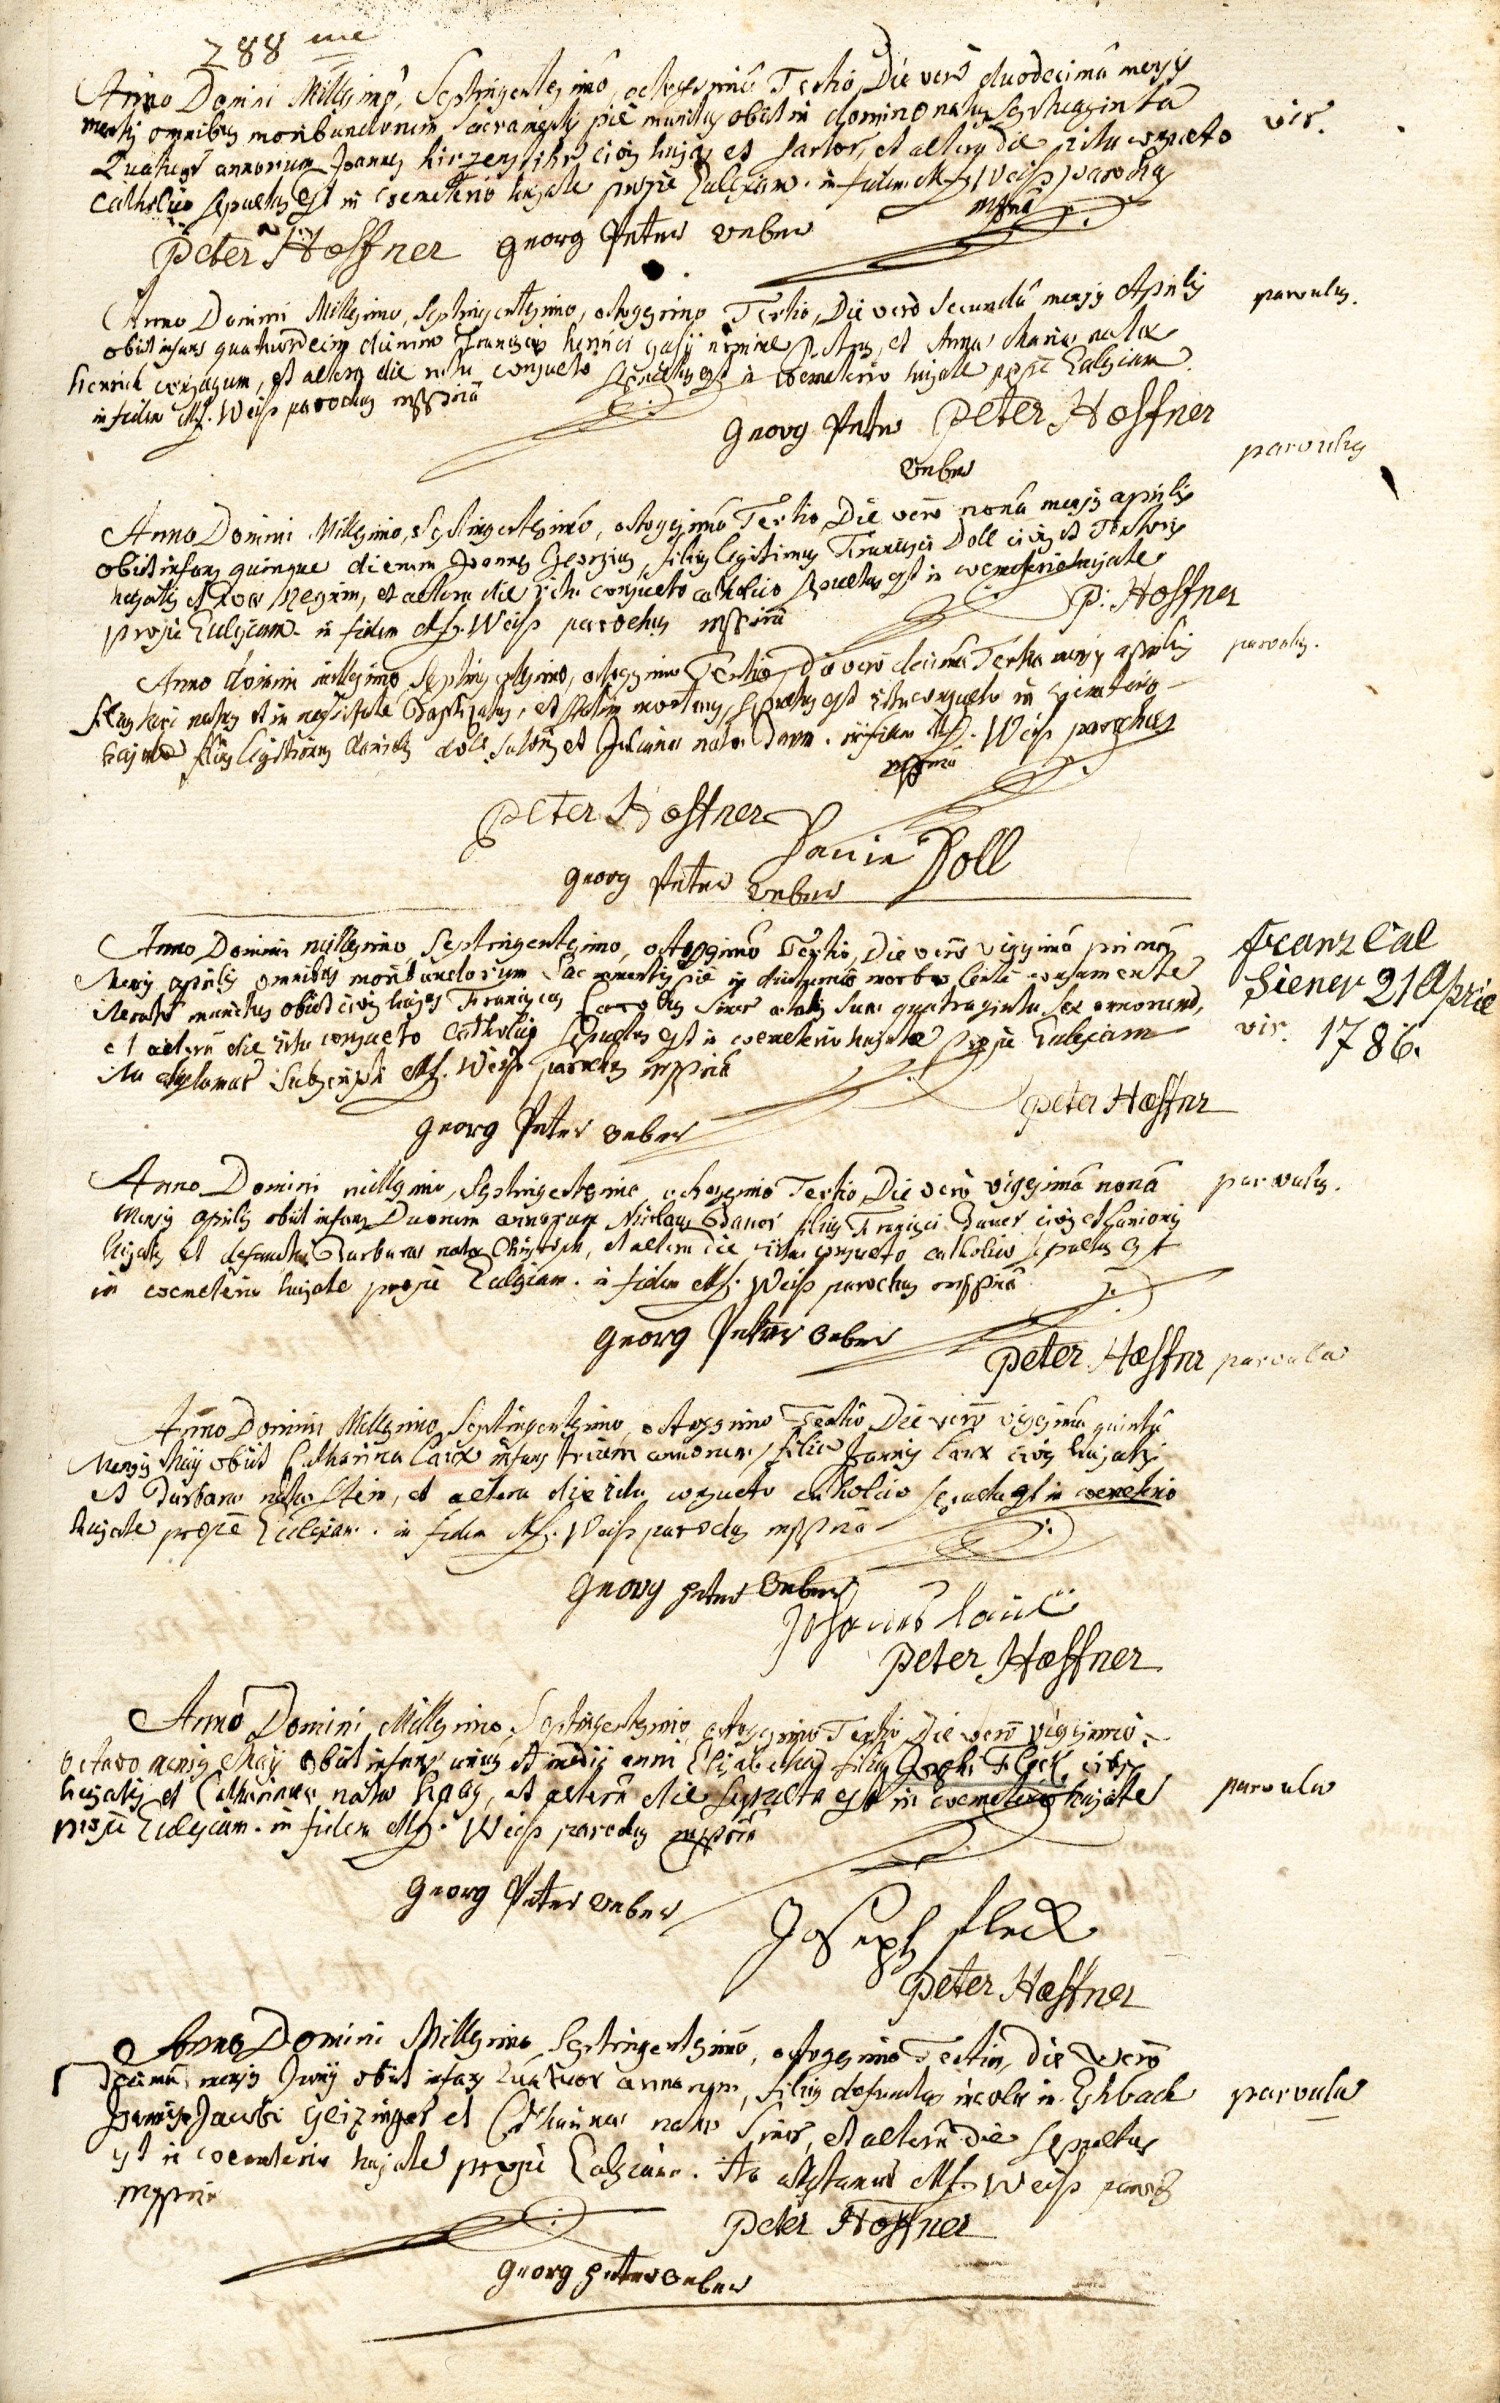 288 me
Anno Domini Millesimo, Septingentesimo, octogesimo Tertio, Die vero duodecima mensis
martij omnibus moribundorum Sacramentis pie munitus obiit in domino natus septuaginta
Quatuor annorum Joannes civis hujas et sartor, et altera die ritu consueto
Catholico sepultus est in coemeterio hujate prope Ecclesiam. in fidem Mf. Weiss parochus
mppria
vir.
Peter Hoeffner Georg Peter Weber
Anno Domini Millesimo, Septingentesimo, octogesimo Tertio, Die vero secunda mensis Aprilis
parvulus.
obiit infans quatuordecim dierum Francisci nomine Petrus, et Anna Maria nata
Henrich conjugum, et altera die ritu consueto sepultus est in coemeterio hujate prope Ecclesiam.
in fidem Mf. Weiss parochus mppria
Georg Peter Weber
Peter Hoeffner
parvulus
Anno Domini Millesimo, Septingentesimo, octogesimo Tertio, Die vero nona mensis aprilis
obiit infans quinque dierum Joannes Georgius, filius legitimus Francisci Doll civis et Textoris
hujatis et altera die ritu consueto catholico sepultus est in coemeterio hujate
prope Ecclesiam. in fidem Mf. Weiss parochus mppria
P: Hoffner
Anno domini millesimo, Septingentesimo, octogesimo Tertio, Die vero decima Tertia mensis aprilis
parvulus.
natus et in necessitate Baptizatus, et statim mortuus, sepultus est ritu consueto in coemeterio
hujate filius legitimus Doll et Juliana nata. in fidem Mf. Weiss parochus
mppria
Peter Hoeffner
Doll
Georg Peter Weber
Anno Domini millesimo, Septingentesimo, octogesimo Tertio, Die vero vigesima prima
Mensis aprilis omnibus moribundorum Sacramentis pie in morbo lente consumente
munitus obiit civis hujas Franciscus Carolus Siener aetatis suae quadraginta sex annorum,
et altera die ritu consueto Catholico sepultus est in coemeterio hujate prope Ecclesiam
ita Subscripsi Mf. Weiss parochus mppria
Franz Cal
Siener 21 Aprie
vir. 1786.
Peter Hoeffner
Georg Peter Weber
Anno Domini millesimo, Septingentesimo, octogesimo Tertio, Die vero vigesima nona
parvulus.
Mensis aprilis obiit infans Duorum annorum Nicolaus Bauer filius Francisci Bauer civis et
hujatis et defuncta Barbara nata, et altera die ritu consueto catholico sepultus est
in coemeterio hujate prope Ecclesiam. in fidem Mf. Weiss parochus mppria
Georg Peter Weber
Peter Hoeffner
parvula
Anno Domini Millesimo, Septingentesimo, octogesimo Tertio, Die vero vigesima quinta
Mensis Maij obiit Catharina Laux infans trium annorum, filia Joannis Laux civis hujatis
et Barbara nata Stein, et altera die ritu consueto catholico sepulta est in coemeterio
hujate prope Ecclesiam. in fidem Mf. Weiss parochus mppria
Georg Peter Weber
Johannes Lauux
Peter Hoeffner
Anno Domini Millesimo, Septingentesimo, octogesimo Tertio, Die vero vigesima
octavo mensis Maij obiit infans unius et medij anni Elisabetha filia Josephi Fleck, civis
hujatis et Catharina nata Haag, et altera die sepulta est in coemeterio hujate
parvula
prope Ecclesiam. in fidem Mf. Weiss parochus mppria
Georg Peter Weber
Joseph Fleck
Peter Hoeffner
Anno Domini Millesimo, Septingentesimo, octogesimo Tertio, Die vero
decima mensis Junij obiit infans Quatuor annorum, filius defunctus incola in Eschbach
parvulus
Jacobi et Catharina nata Siener, et altera die sepultus
est in coemeterio hujate prope Ecclesiam. Ita attestamur Mf. Weiss paroch
mppria
Peter Hoffner
Georg Peter Weber